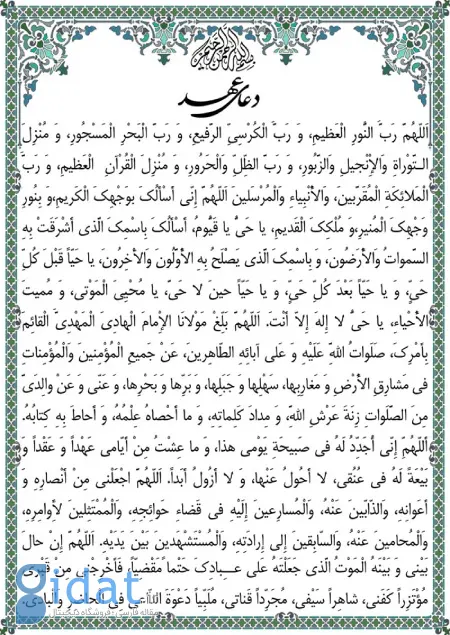 بسم الله الرحمن الرحیم
دعای عهد
اَللّهُمَّ رَبَّ النُّورِ الْعَظیمِ، وَ رَبَّ الْكُرْسِیِّ الرَّفیعِ، وَ رَبَّ الْبَحْرِ الْمَسْجُورِ، وَ مُنْزِلَ
التَّوْراةِ وَالْإِنْجیلِ وَالزَّبُورِ، وَ رَبَّ الظِّلِّ وَالْحَرُورِ، وَ مُنْزِلَ الْقُرْآنِ الْعَظیمِ، وَ رَبَّ
الْمَلائِكَةِ الْمُقَرَّبینَ، وَالْأَنْبِیاءِ وَالْمُرْسَلینَ اَللّهُمَّ إِنّی أَسْأَلُكَ بِوَجْهِكَ الْكَریمِ،وَ بِنُورِ
وَجْهِكَ الْمُنیرِ،وَ مُلْكِكَ الْقَدیمِ، یا حَیُّ یا قَیُّومُ، أَسْأَلُكَ بِاسْمِكَ الَّذی أَشْرَقَتْ بِهِ
السَّمواتُ وَالْأَرَضُونَ، وَ بِاسْمِكَ الَّذی یَصْلَحُ بِهِ الْأَوَّلُونَ وَالْآخِرُونَ، یا حَیّاً قَبْلَ كُلِّ
حَیٍّ، وَ یا حَیّاً بَعْدَ كُلِّ حَیٍّ، وَ یا حَیّاً حینَ لا حَیَّ، یا مُحْیِیَ الْمَوْتی، وَ مُمیتَ
الْأَحْیاءِ، یا حَیُّ لا إِلهَ إِلاّ أَنْتَ. اَللّهُمَّ بَلِّغْ مَوْلانَا الْإِمامَ الْهادِیَ الْمَهْدِیَّ الْقائِمَ
بِأَمْرِكَ، صَلَواتُ اللهِ عَلَیْهِ وَ عَلی آبائِهِ الطّاهِرینَ، عَنْ جَمیعِ الْمُؤْمِنینَ وَالْمُؤْمِناتِ
فی مَشارِقِ الْأَرْضِ وَ مَغارِبِها، سَهْلِها وَ جَبَلِها، وَ بَرِّها وَ بَحْرِها، وَ عَنّی وَ عَنْ والِدَیَّ
مِنَ الصَّلَواتِ زِنَةَ عَرْشِ اللهِ، وَ مِدادَ كَلِماتِهِ، وَ ما أَحْصاهُ عِلْمُهُ، وَ أَحاطَ بِهِ كِتابُهُ.
اَللّهُمَّ إِنّی أُجَدِّدُ لَهُ فی صَبیحَةِ یَوْمی هذا، وَ ما عِشْتُ مِنْ أَیّامی عَهْداً وَ عَقْداً وَ
بَیْعَةً لَهُ فی عُنُقی، لا أَحُولُ عَنْها، وَ لا أَزُولُ أَبَداً. اَللّهُمَّ اجْعَلْنی مِنْ أَنْصارِهِ وَ
أَعْوانِهِ، وَالذّابّینَ عَنْهُ، وَالْمُسارِعینَ إِلَیْهِ فی قَضاءِ حَوائِجِهِ، وَالْمُمْتَثِلینَ لِأَوامِرِهِ،
وَالْمُحامینَ عَنْهُ، وَالسّابِقینَ إِلی إِرادَتِهِ، وَالْمُسْتَشْهَدینَ بَیْنَ یَدَیْهِ. اَللّهُمَّ إِنْ حالَ
بَیْنی وَ بَیْنَهُ الْمَوْتُ الَّذی جَعَلْتَهُ عَلی عِبادِكَ حَتْماً مَقْضِیّاً، فَأَخْرِجْنی مِنْ قَبْری
مُؤْتَزِراً كَفَنی، شاهِراً سَیْفی، مُجَرِّداً قَناتی، مُلَبِّیاً دَعْوَةَ الدّاعی فِی الْحاضِرِ وَالْبادی.
gidat
مقاله فارسی؛ فروشگاه دیجیتال